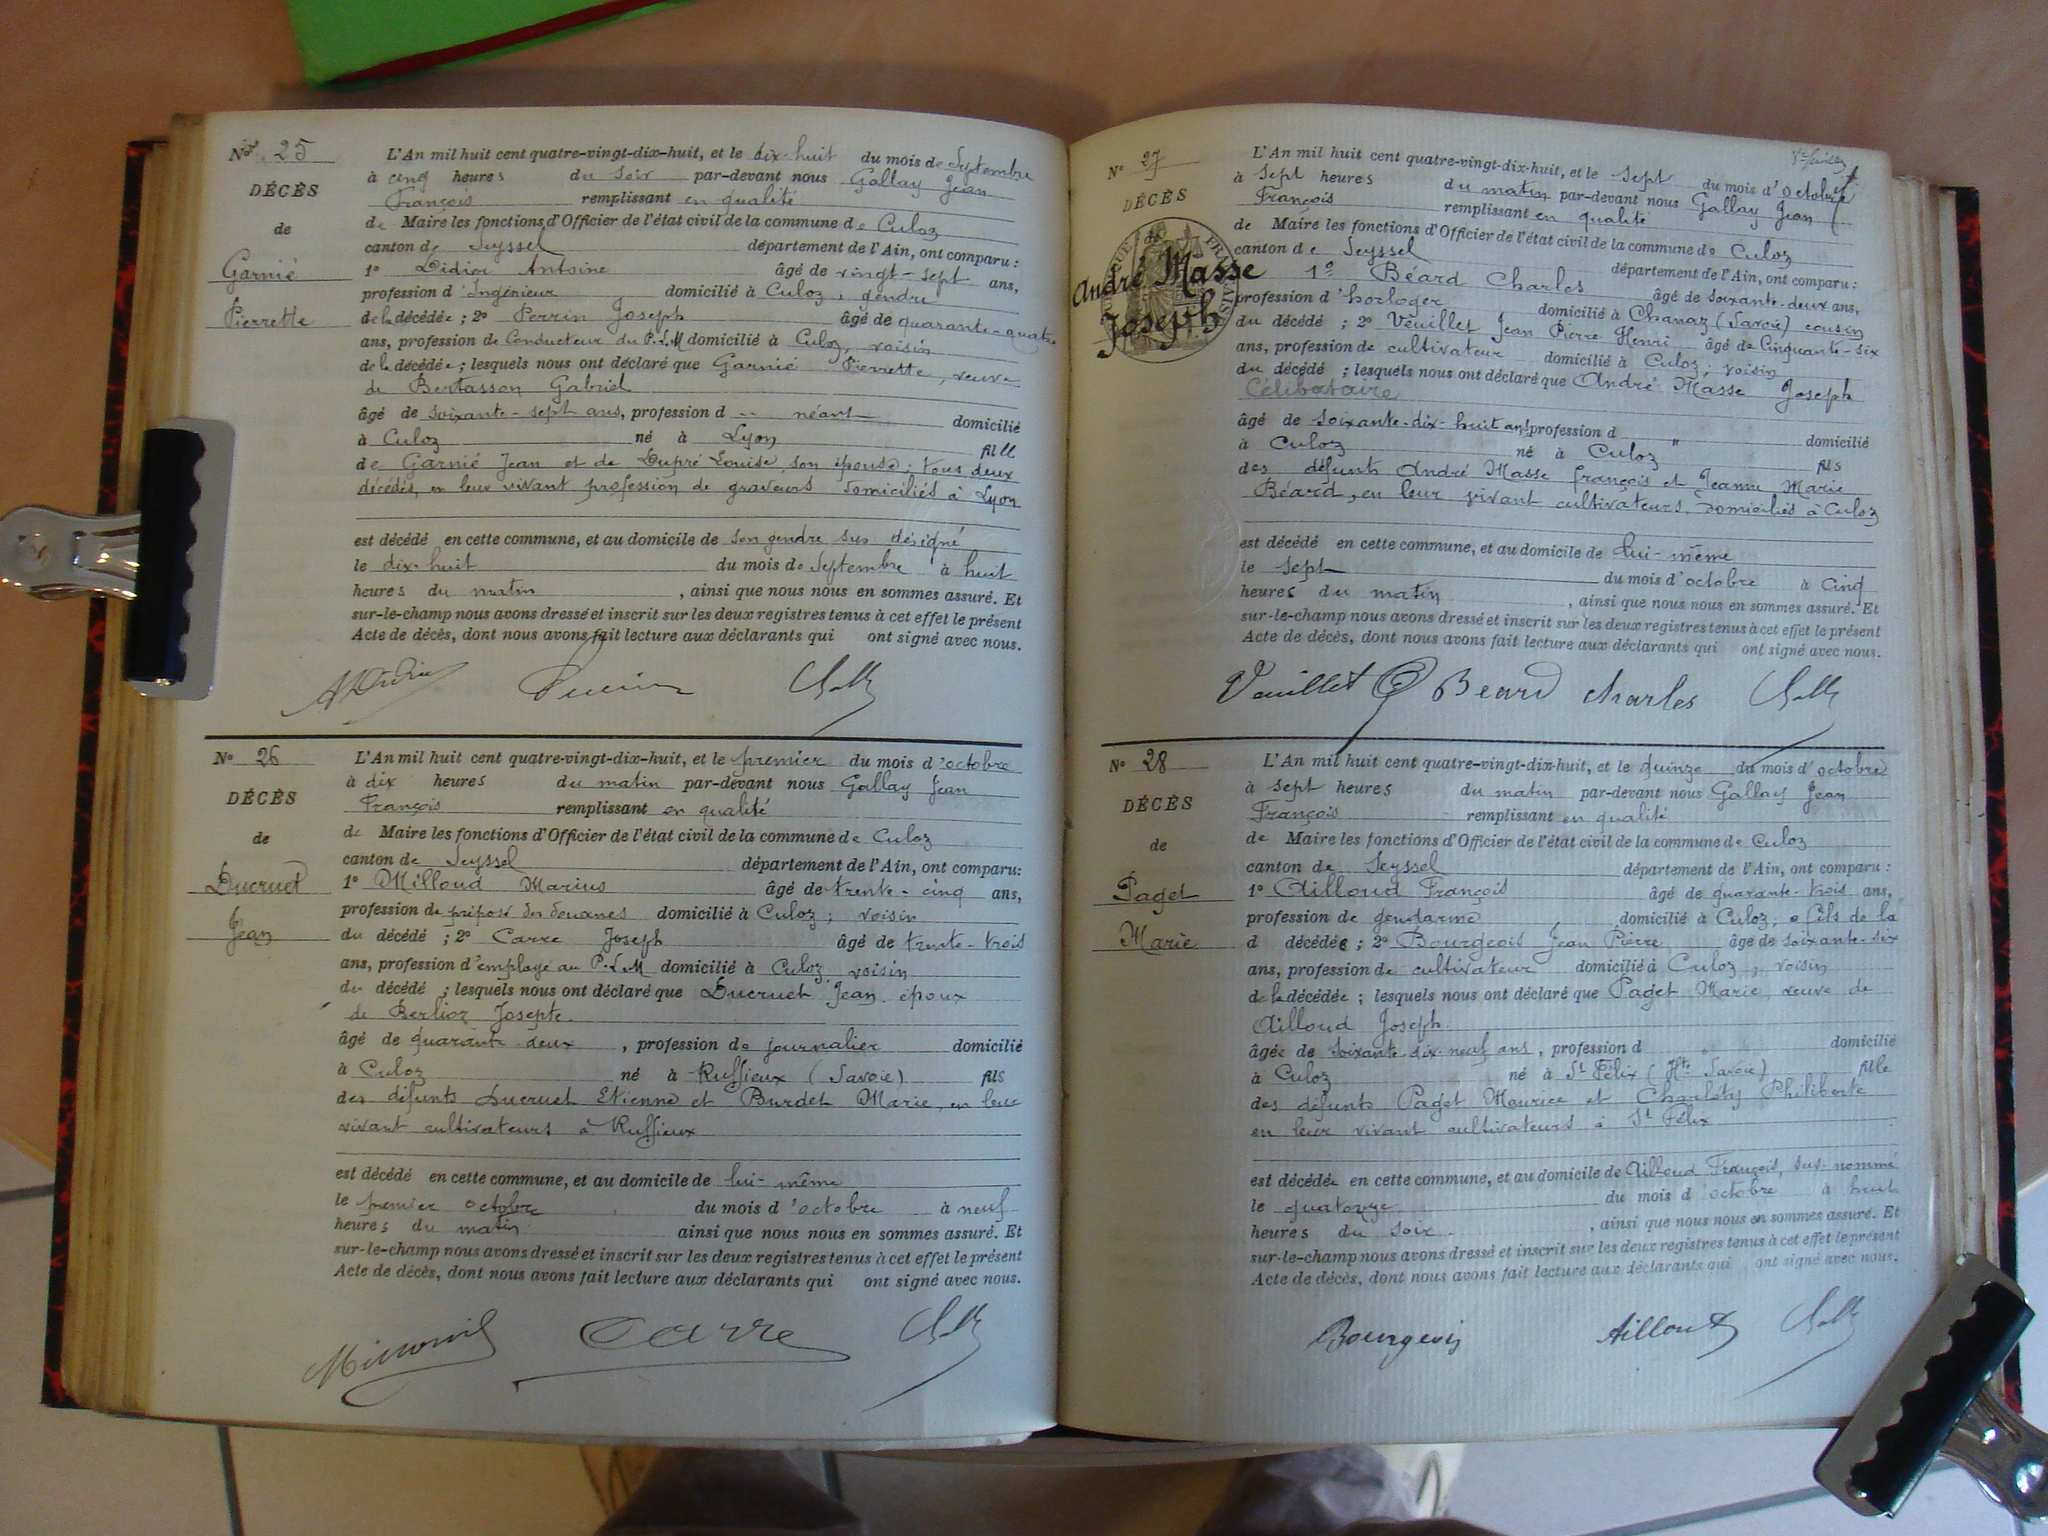 N° 25
DÉCÈS
de
Garnié
Pierrette
L'An mil huit cent quatre-vingt-dix-huit, et le dix-huit du mois de Septembre
à cinq heures du soir par-devant nous Gallay Jean
François remplissant en qualité
de Maire les fonctions d'Officier de l'état civil de la commune de Culoz
canton de Seyssel département de l'Ain, ont comparu :
1° Didier Antoine âgé de vingt-sept ans,
profession d'Ingénieur domicilié à Culoz, gendre
de la décédée ; 2° Perrin Joseph âgé de quarante-quatre
ans, profession de Conducteur du P.L.M domicilié à Culoz, voisin
de la décédée ; lesquels nous ont déclaré que Garnié Pierrette, veuve
de Bertasson Gabriel
âgé de soixante-sept ans, profession d néant domicilié
à Culoz né à Lyon fille
de Garnié Jean et de Dupré Louise son épouse ; tous deux
décédés, en leur vivant profession de graveurs domiciliés à Lyon
est décédé en cette commune, et au domicile de son gendre sus désigné
le dix-huit du mois de Septembre à huit
heures du matin, ainsi que nous nous en sommes assuré. Et
sur-le-champ nous avons dressé et inscrit sur les deux registres tenus à cet effet le présent
Acte de décès, dont nous avons fait lecture aux déclarants qui ont signé avec nous.
N° 26
DÉCÈS
de
Ducruet
Jean
L'An mil huit cent quatre-vingt-dix-huit, et le premier du mois d'octobre
à dix heures du matin par-devant nous Gallay Jean
François remplissant en qualité
de Maire les fonctions d'Officier de l'état civil de la commune de Culoz
canton de Seyssel département de l'Ain, ont comparu:
1° Milloud Marius âgé de trente-cinq ans,
profession de préposé des douanes domicilié à Culoz ; voisin
du décédé ; 2° Carre Joseph âgé de trente-trois
ans, profession d'employé au P.L.M domicilié à Culoz voisin
du décédé ; lesquels nous ont déclaré que Ducruet Jean époux
de Berlioz Josepte
âgé de quarante deux, profession de journalier domicilié
à Culoz né à Ruffieux (Savoie) fils
des défunts Ducruet Etienne et Burdet Marie, en leur
vivant cultivateurs à Ruffieux
est décédé en cette commune, et au domicile de lui-même
le premier octobre du mois d'octobre à neuf
heures du matin ainsi que nous nous en sommes assuré. Et
sur-le-champ nous avons dressé et inscrit sur les deux registres tenus à cet effet le présent
Acte de décès, dont nous avons fait lecture aux déclarants qui ont signé avec nous.
Carre
N° 27
DÉCÈS
de
André Masse
Joseph
L'An mil huit cent quatre-vingt-dix-huit, et le sept du mois d'octobre
à sept heures du matin par-devant nous Gallay Jean
François remplissant en qualité
de Maire les fonctions d'Officier de l'état civil de la commune de Culoz
canton de Seyssel département de l'Ain, ont comparu :
1° Béard Charles âgé de soixante-deux ans,
profession d'horloger domicilié à Chanaz (Savoie) cousin
du décédé ; 2° Veuillet Jean Pierre Henri âgé de Cinquante-six
ans, profession de cultivateur domicilié à Culoz, voisin
du décédé ; lesquels nous ont déclaré que André Masse Joseph
Célibataire
âgé de soixante-dix-huit ans, profession d " domicilié
à Culoz né à Culoz fils
des défunts André Masse françois et Jeanne Marie
Béard, en leur vivant cultivateurs, domiciliés à Culoz
est décédé en cette commune, et au domicile de lui-même
le sept du mois d'octobre à cinq
heures du matin, ainsi que nous nous en sommes assuré. Et
sur-le-champ nous avons dressé et inscrit sur les deux registres tenus à cet effet le présent
Acte de décès, dont nous avons fait lecture aux déclarants qui ont signé avec nous.
Veuillet Beard charles
N° 28
DÉCÈS
de
Paget
Marie
L'An mil huit cent quatre-vingt-dix-huit, et le quinze du mois d'octobre
à sept heures du matin par-devant nous Gallay Jean
François remplissant en qualité
de Maire les fonctions d'Officier de l'état civil de la commune de Culoz
canton de Seyssel département de l'Ain, ont comparu :
1° Ailloud François âgé de quarante-trois ans,
profession de gendarme domicilié à Culoz, fils de la
d décédée ; 2° Bourgeois Jean Pierre âgé de soixante-six
ans, profession de cultivateur domicilié à Culoz, voisin
de la décédée ; lesquels nous ont déclaré que Paget Marie, veuve de
Ailloud Joseph
âgée de soixante dix neuf ans, profession d domicilié
à Culoz né à St Félix (Hte Savoie) fille
des défunts Paget Maurice et Charléty Philiberte
en leur vivant cultivateurs à St Félix
est décédée en cette commune, et au domicile de Ailloud François, sus-nommé
le quatorze du mois d'octobre à huit
heures du soir, ainsi que nous nous en sommes assuré. Et
sur-le-champ nous avons dressé et inscrit sur les deux registres tenus à cet effet le présent
Acte de décès, dont nous avons fait lecture aux déclarants qui ont signé avec nous.
Bourgeois Ailloud